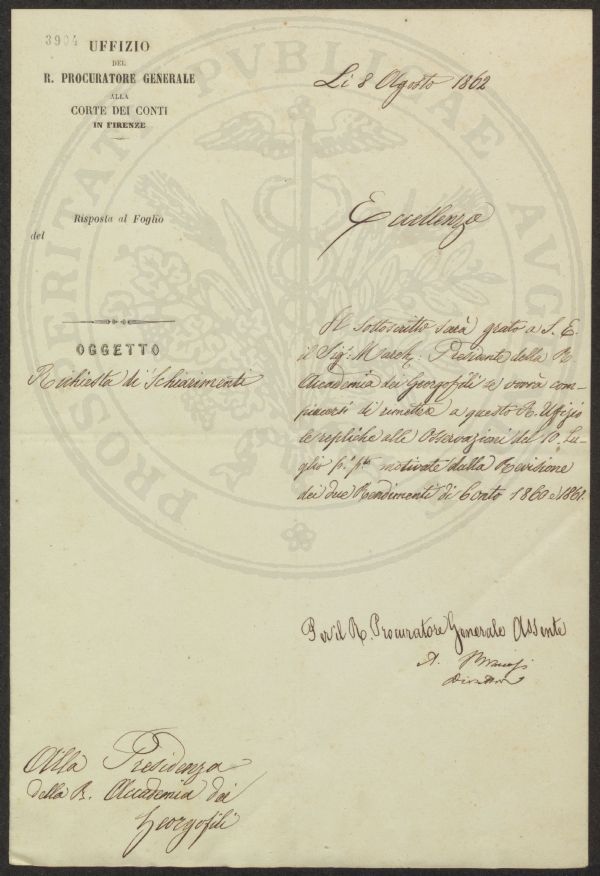 3904
UFFIZIO
DEL
R. PROCURATORE GENERALE
ALLA
CORTE DEI CONTI
IN FIRENZE
Li 8 Agosto 1862
Risposta al Foglio
del
Eccellenza
OGGETTO
Richiesta di Schiarimenti
Il Sottoscritto sarà grato a S. E.
il Sig: March. Presidente della R.
Accademia dei Georgofili se vorrà com-
piacersi di rimettere a questo R. Uffizio
le repliche alle Osservazioni del 10. Lu-
glio p.° p.to motivate dalla Revisione
dei due Rendimenti di Conto 1860 e 1861.
Per il R. Procuratore Generale Assente
A.
Alla Presidenza
della R. Accademia dei
Georgofili
PROSPERITATI PVBLICAE AVG